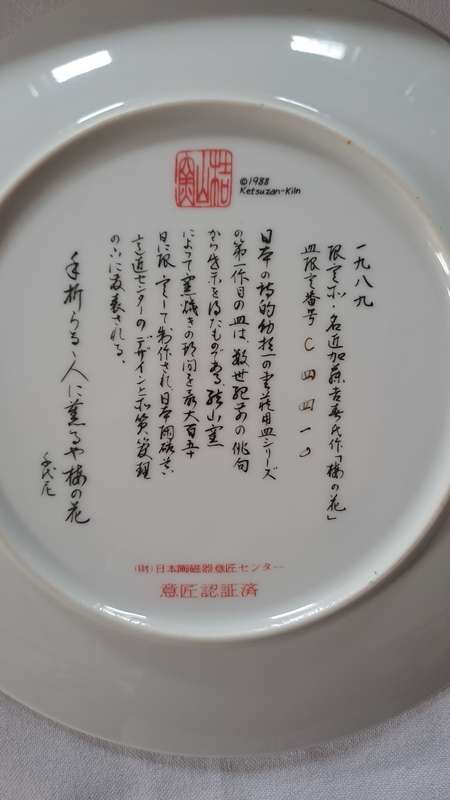 桔山窯
©1988
Ketsuzan-Kiln
一九八九
皿限定番号 C四四一〇
日本の詩的動抂の愛蔵用皿シリーズ
の第一作目の皿は、数世紀前の俳句
から啓示を得たものである。桔山窯
によって窯焼きの期間を最大百五十
日に限定して制作され、日本陶磁器
意匠センターのデザインと品質管理
のもとに発表される。
手折らるゝ人に薫るや梅の花
千代尼
(財)日本陶磁器意匠センター
意匠認証済